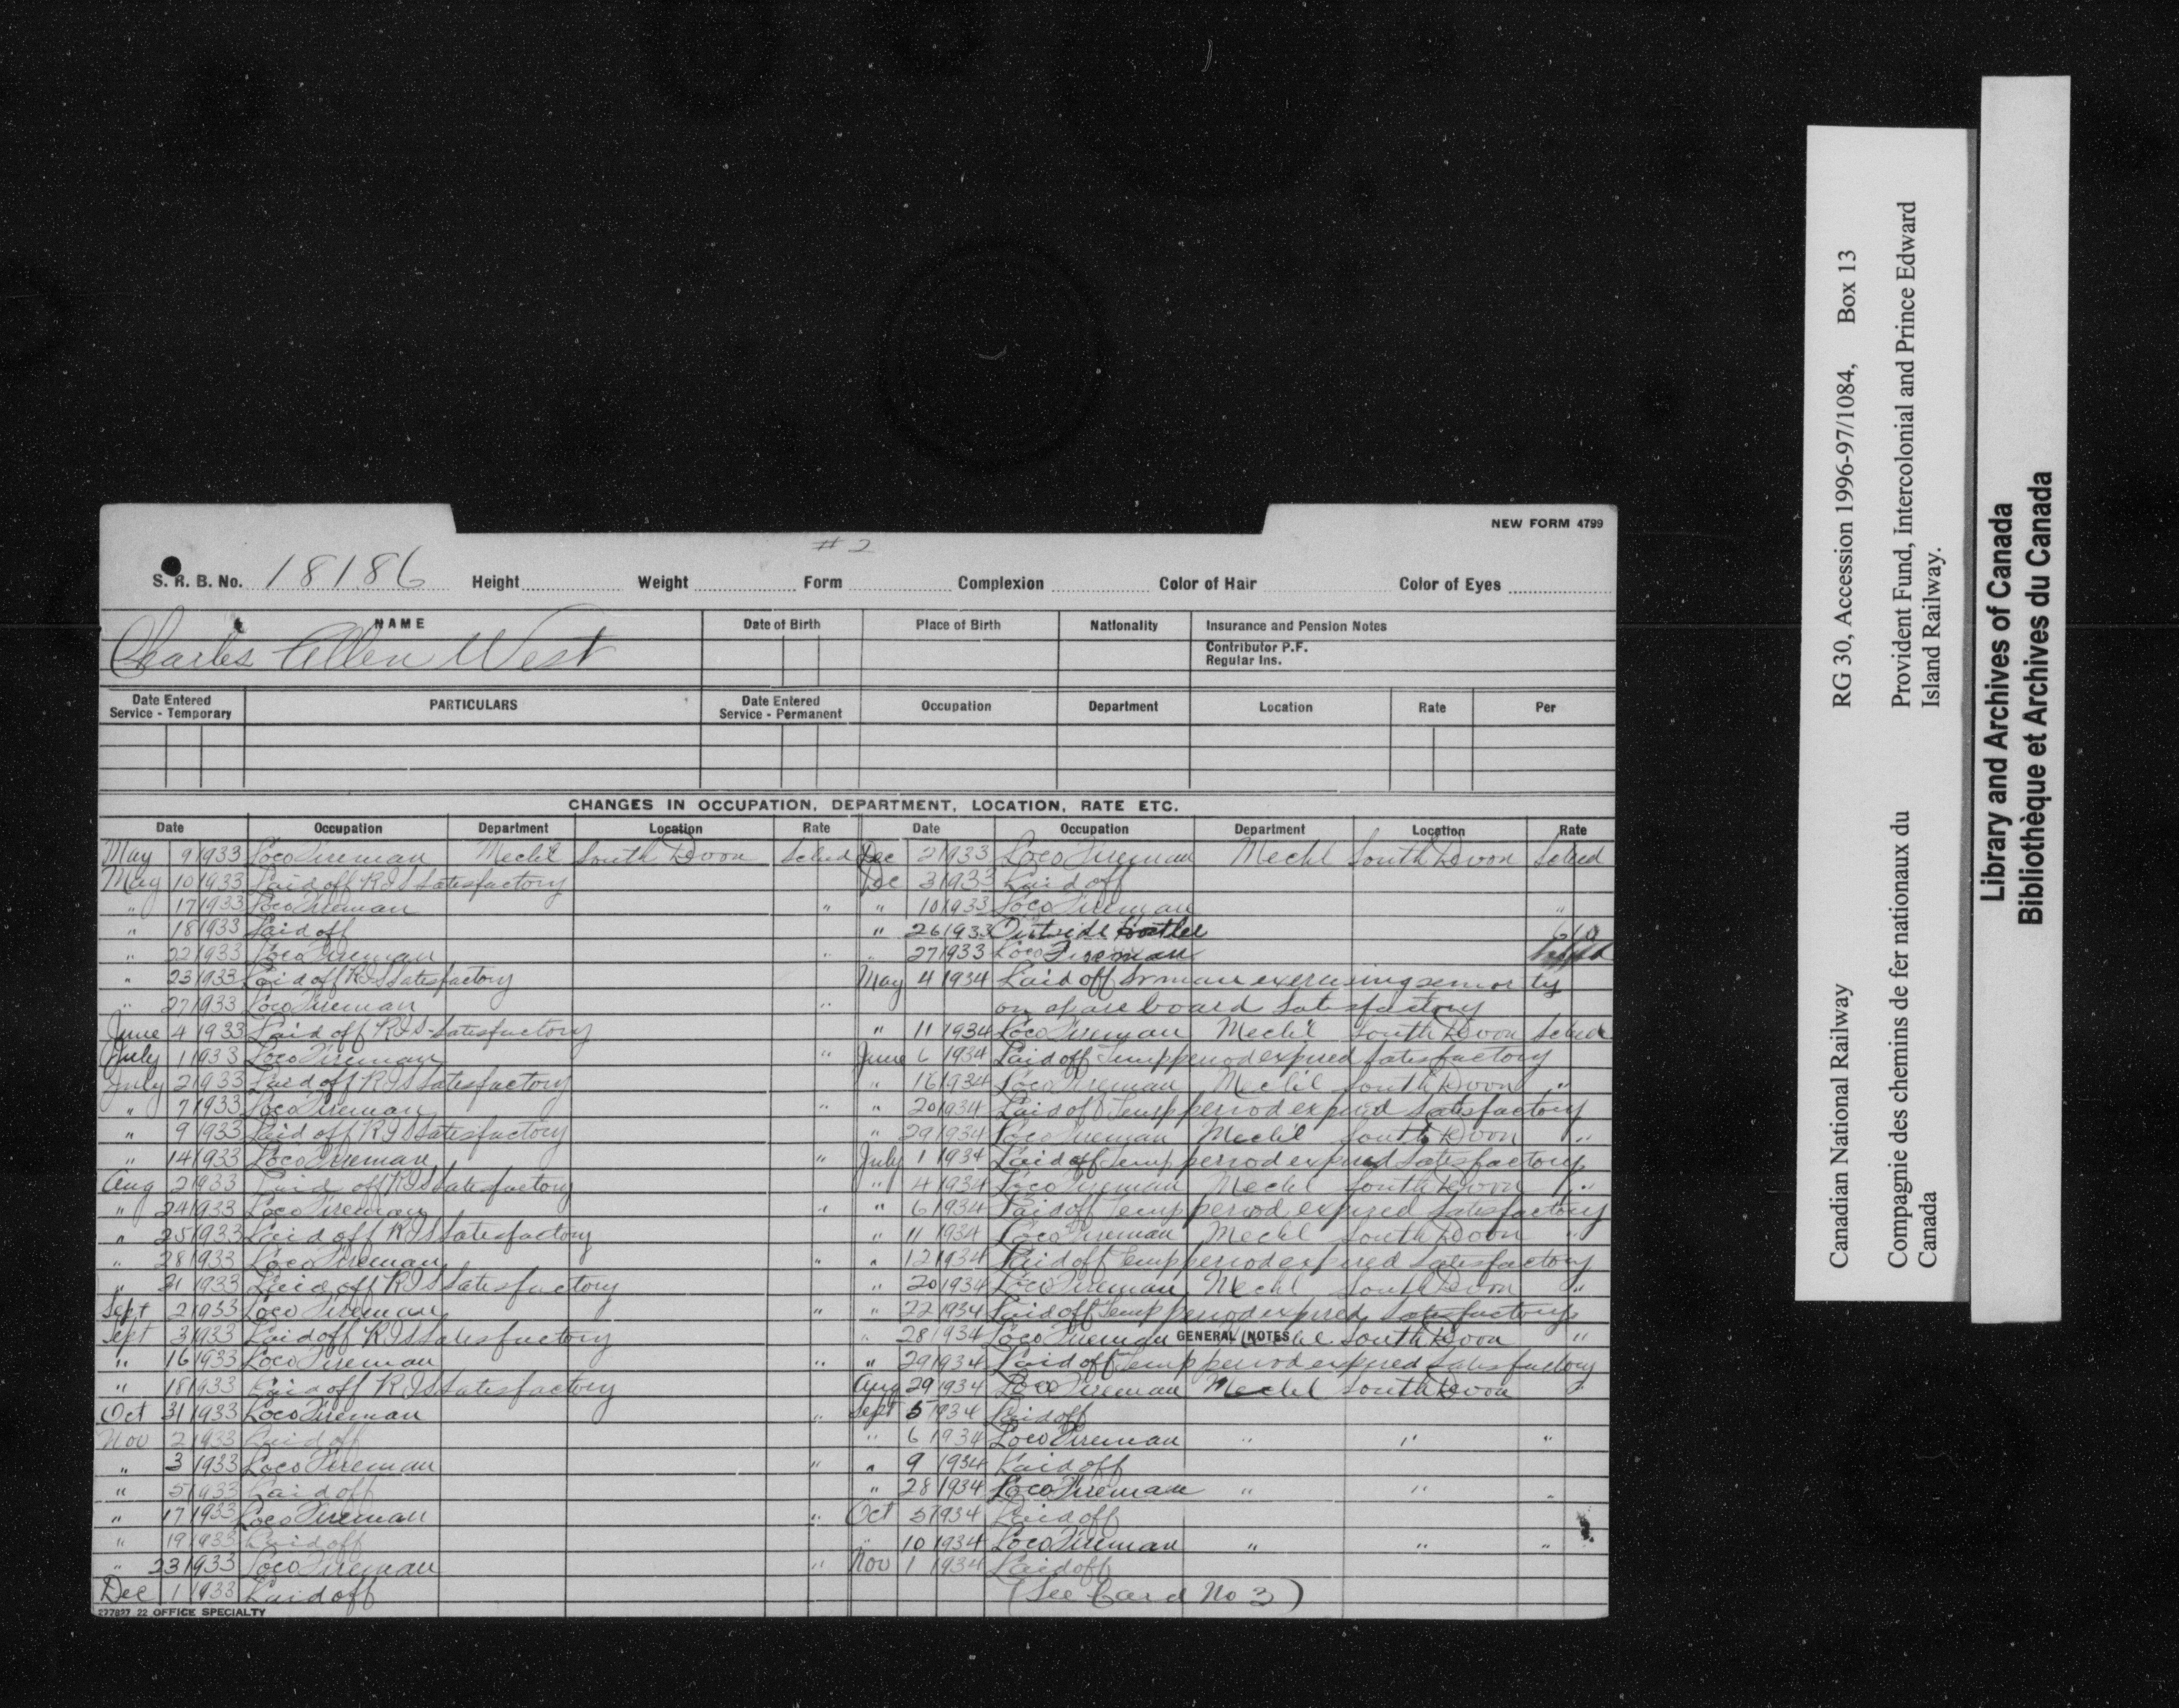 NEW FORM 4799
# 2
S. R. B. No. 18186 Height Weight Form Complexion Color of Hair Color of Eyes
NAME Date of Birth Place of Birth Nationality Insurance and Pension Notes
Charles Allen West
Contributor P.F.
Regular Ins.
Date Entered Service - Temporary PARTICULARS Date Entered Service - Permanent Occupation Department Location Rate Per
CHANGES IN OCCUPATION, DEPARTMENT, LOCATION, RATE ETC.
Date Occupation Department Location Rate
May 9 1933 Loco Fireman Mech'l South Devon Sched
May 10 1933 Laid off R I S Satisfactory
" 17 1933 Loco Fireman "
" 18 1933 Laid off
" 22 1933 Loco Fireman "
" 23 1933 Laid off R I S Satisfactory
" 27 1933 Loco Fireman "
June 4 1933 Laid off R I S - Satisfactory
July 1 1933 Loco Fireman "
July 2 1933 Laid off R I S Satisfactory
" 7 1933 Loco Fireman "
" 9 1933 Laid off R I S Satisfactory
" 14 1933 Loco Fireman "
Aug 2 1933 Laid off R I S Satisfactory
" 24 1933 Loco Fireman "
" 25 1933 Laid off R I S Satisfactory
" 28 1933 Loco Fireman "
" 31 1933 Laid off R I S Satisfactory
Sept 2 1933 Loco Fireman "
Sept 3 1933 Laid off R I S Satisfactory
" 16 1933 Loco Fireman "
" 18 1933 Laid off R I S Satisfactory
Oct 31 1933 Loco Fireman "
Nov 2 1933 Laid off
" 3 1933 Loco Fireman "
" 5 1933 Laid off
" 17 1933 Loco Fireman "
" 19 1933 Laid off
" 23 1933 Loco Fireman "
Dec 1 1933 Laid off
277827 22 OFFICE SPECIALTY
Date Occupation Department Location Rate
Dec 2 1933 Loco Fireman Mechl South Devon Sched
Dec 3 1933 Laid off
" 10 1933 Loco Fireman "
" 26 1933 Outside Hostler 610
" 27 1933 Loco Fireman
May 4 1934 Laid off Sr man exercising seniority
on spare board Satisfactory
" 11 1934 Loco Fireman Mech'l South Devon Sched
June 6 1934 Laid off Temp period expired Satisfactory
" 16 1934 Loco Fireman Mech'l South Devon "
" 20 1934 Laid off Temp period expired Satisfactory
" 29 1934 Loco Fireman Mech'l South Devon "
July 1 1934 Laid off Temp period expired Satisfactory
" 4 1934 Loco Fireman Mechl South Devon "
" 6 1934 Laid off Temp period expired Satisfactory
" 11 1934 Loco Fireman Mechl South Devon "
" 12 1934 Laid off Temp period expired Satisfactory
" 20 1934 Loco Fireman Mechl South Devon "
" 22 1934 Laid off Temp period expired Satisfactory
" 28 1934 Loco Fireman GENERAL NOTES South Devon "
" 29 1934 Laid off Temp period expired Satisfactory
Aug 29 1934 Loco Fireman Mechl South Devon "
Sept 5 1934 Laid off
" 6 1934 Loco Fireman " " "
" 9 1934 Laid off
" 28 1934 Loco Fireman " " "
Oct 5 1934 Laid off
" 10 1934 Loco Fireman " " "
Nov 1 1934 Laid off
(See Card No 3)
Canadian National Railway RG 30, Accession 1996-97/1084, Box 13
Compagnie des chemins de fer nationaux du Canada
Provident Fund, Intercolonial and Prince Edward Island Railway.
Library and Archives of Canada
Bibliothèque et Archives du Canada